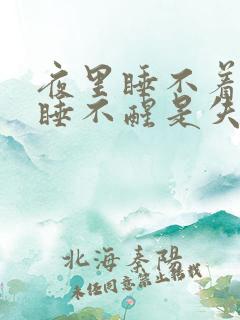 夜里睡不着
睡不醒是失
北海秦阳
未经同意禁止转载